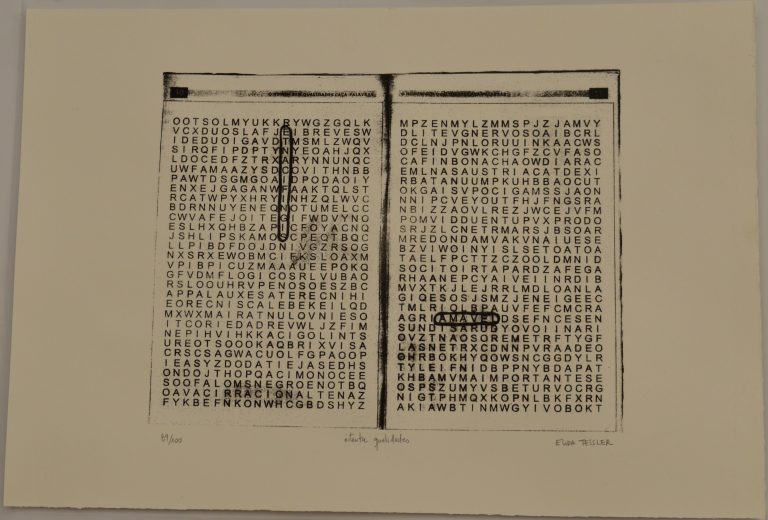 OOTSOLMYUKKRYWGZGQLK
VCXDUOSLAFJEIBREVESW
IDEDUOIGAVDTMSMLZWQV
SIRQFIPDPTYNYEOAHJQX
LDOCEDFZTRXARYNNUNQC
UWFAMAAZYSDCOVITHNBB
PAWTDSGMGOAIDPODAOIY
ENXEJGAGANWFAAKTQLST
RCATWPYXHRYINHZQLWVC
BDRNNUYENEQNOTUMELCC
CWVAFEJOITEGIFWDVYNO
ESLHXQHBZAPICFOYACNQ
JSHLIPSKAMOSCPEQTBQC
LLPIBDFDOJDNIVGZRSOG
NXSRXEWOBMCIFKSLOAXM
VPIBPICUZMAAAUEEPOKQ
GFVDMFLOGICOSRLVUBAO
RSLOOUHRVPENOSOESZBC
APPALAUXESATERECNIHI
EORECNISCALEBEKEILQD
MXWXMAIRATNULOVNIESO
ITCORIEDADREVWLJZFIM
NEPIHVIHKKACIGOLINTS
UREOTSOOOKAQBRIXVISA
CRSCSAGWACUOLFGPAOOP
IEASYZDODATIEJASEDHS
ONDOJTHOPQACIMONOCEE
SOOFALOMSNEGROENOTBQ
OAVACIRRACIONALTENAZ
FYKBEFNKONWHCGBDSHYZ
MPZENMYLZMMSPJZJAMVY
DLITEVGNERVOSOAIBCRL
DCLNJPNLORUUINKAACWS
OFEIDVGWKCHGFZCVFASO
CAFINBONACHAOWDIARAC
EMLNASAUSTRIACATDEXI
RBATANUUMPKUHBBAOCUT
OKGAISVPOCIGAMSSJAON
NNIPCVEYOUTFHJFNGSRA
NBIZZAOVLREZJWCEJVFM
POMVIDDUENTUPVXPRODO
SRJZLCNETRMARSJBSOAR
MREDONDAMVAKVNAIUESE
BZVIWOINYISLSETOATOA
TAELFPCTTZCZOOLDMNID
SOCITOIRTAPARDZAFEGA
RHAANEPCYAIVEIINRIDR
MVXTKJLEJRRLMDLOANLA
GIQESOSJSMZJENEIGEEC
TMLRIOLBPAUVFEFCMCRA
AGRIAMAVELDSEFNCESEN
SUNDTSARUDYOVOIINARI
OVZTNAOSOREMETRFTYGF
LASNETRXCDNNPVRAADEO
OHRBOKHYQOWSNCGGDYLR
TYLEIFNIDBPPNYBDAPAT
KHBAMVMAIMPORTANTESE
OSPSZUMYVSBETURVOCRG
NIGTPHMQXKOPNLBKFXRN
AKIAWBTINMWGYIVOBOKT
89/100